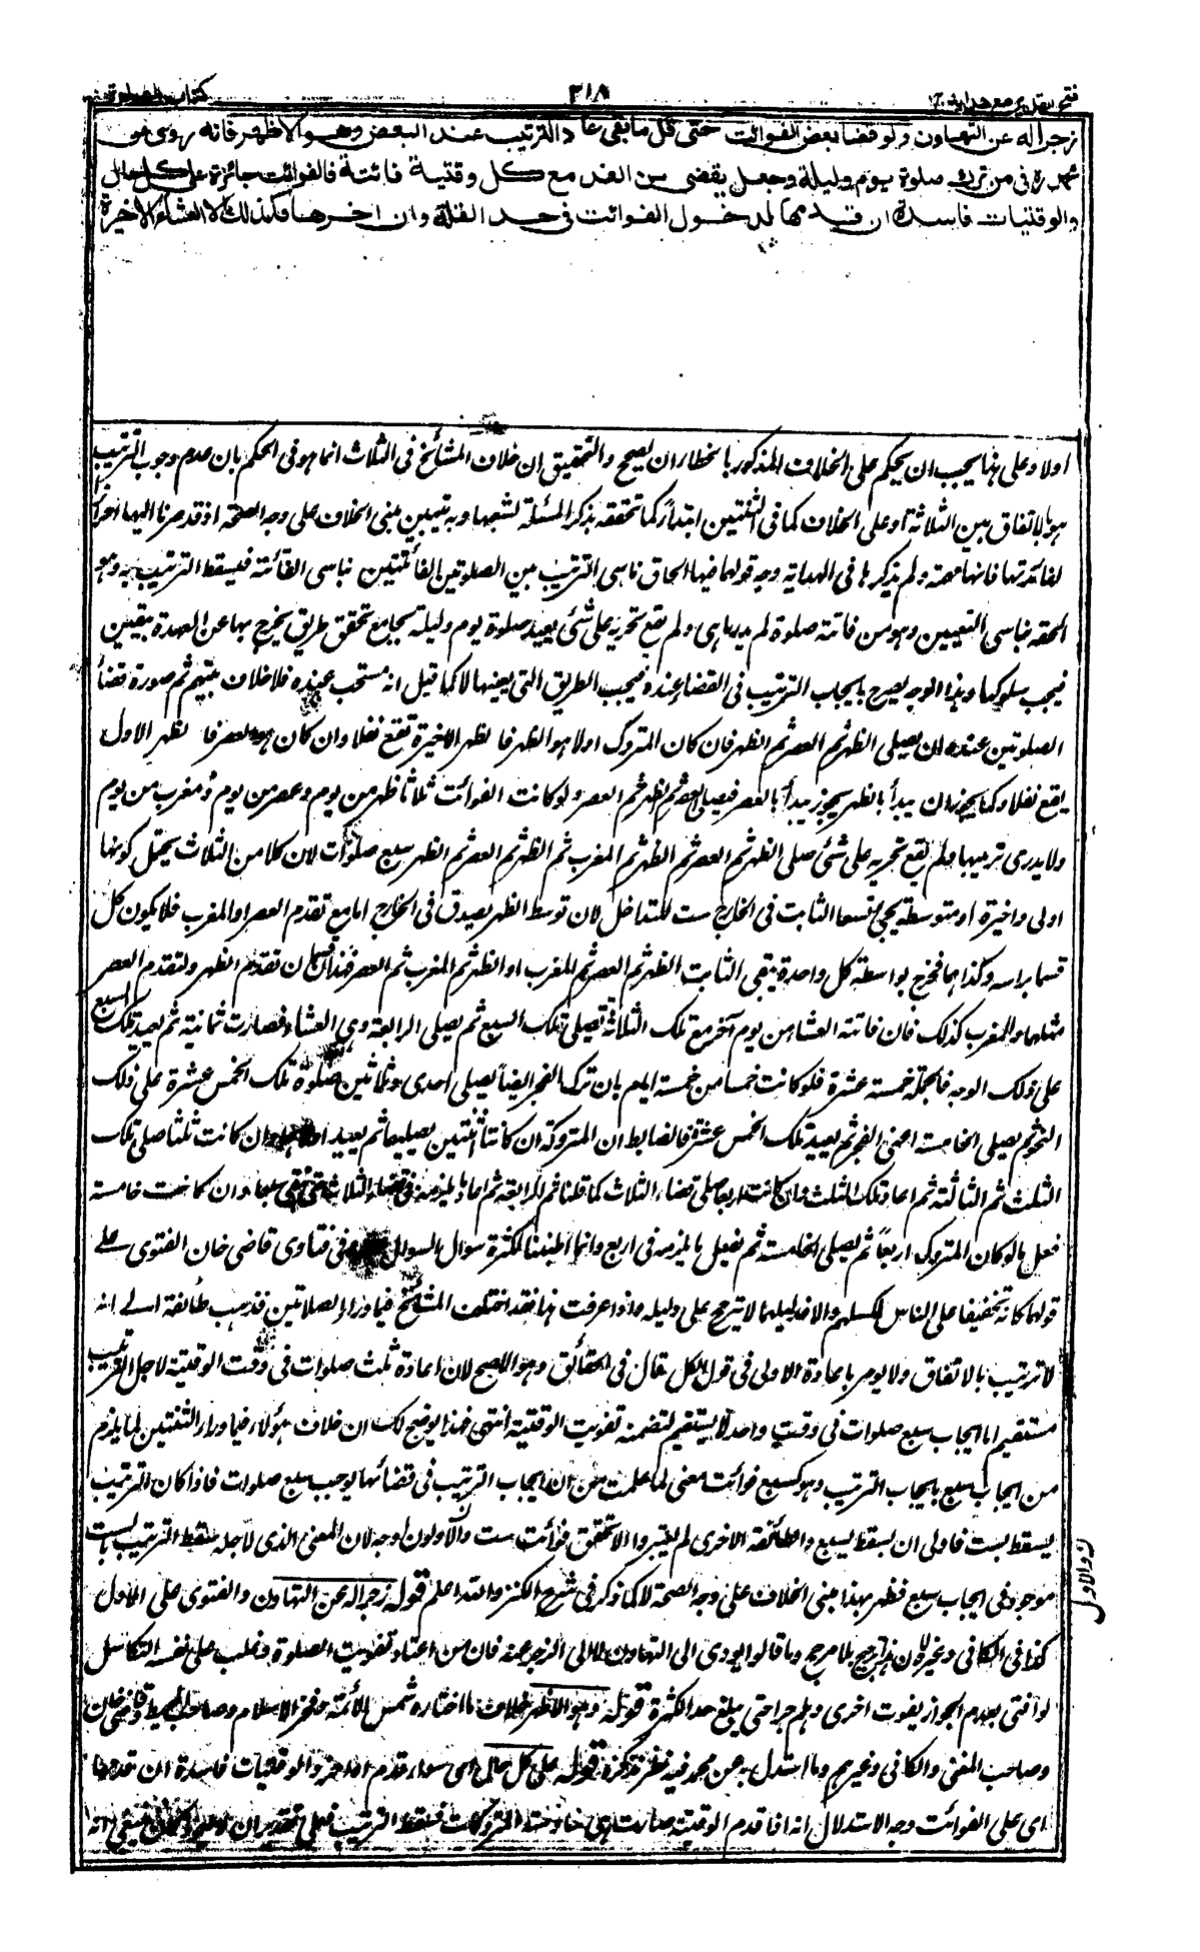 فتح القدير مع هدايه ج ١
٣١٨
كتاب الصلوة
زجرا له عن التهاون ولو قضا بعض الفوائت حتى قل ما بقى عاد الترتيب عند البعض وهو الاظهر فانه روى عن
محمد ره فى من ترك صلوة يوم وليلة وجعل يقضى من الغد مع كل وقتية فائتة فالفوائت جائزة على كل حال
والوقتيات فاسدة ان قدمها لدخول الفوائت فى حد القلة وان اخرها فكذلك الا العشاء الاخيرة
اولا وعلى هذا يجب ان يحكم على الخلاف المذكور بالخطا وان لم يصح والتحقيق ان خلاف المشائخ فى الثلاث انما هو فى الحكم بان عدم وجوب الترتيب
هو بالاتفاق بين الثلاثة او على الخلاف كما فى الثنتين ابتداء كما تحققه بذكر المسئلة لشعبها وبه يتبين مبنى الخلاف على وجه الصحة اذ قد صرنا اليها اخرا
لفائدتها فانها مهمة ولم يذكرها فى الهداية وجه قولهما فيها الحاق ناسى الترتيب بين الصلوتين الفائتتين بناسى الفائتة فيسقط الترتيب به وهو
الحقه بناسى التعيين وهو من فاتته صلوة لم يدر ما هى ولم يقع تحريه على شئ يعيد صلوة يوم وليلة بجامع تحقق طريق يخرج بها عن العهدة بيقين
فيجب سلوكها وهذا الوجه يصرح بايجاب الترتيب فى القضاء عنده فيجب الطريق التى يعينها لا كما قيل انه مستحب عنده فلا خلاف بينهم ثم صورة قضاء
الصلوتين عنده ان يصلى الظهر ثم العصر ثم الظهر فان كان المتروك اولا هو الظهر فالظهر الاخيرة تقع نفلا وان كان هو العصر فالظهر الاول
يقع نفلا وكما يجوز ان يبدأ بالظهر يجوز يبدأ بالعصر فيصلى العصر ثم الظهر ثم العصر ولو كانت الفوائت ثلاثا ظهر من يوم وعصر من يوم ومغرب من يوم
ولا يدرى ترتيبها ولم يقع تحريه على شئ صلى الظهر ثم العصر ثم الظهر ثم المغرب ثم الظهر ثم العصر ثم الظهر سبع صلوات لان كلا من الثلاث يحتمل كونها
اولى واخيرة او متوسطة يجئ تسعا الثابت فى الخارج ست للتداخل لان توسط الظهر يصدق فى الخارج اما مع تقدم العصر او المغرب فلا يكون كل
قسما براسه وكذا هما فخرج بواسطة كل واحدة يبقى الثابت الظهر ثم العصر ثم المغرب او الظهر ثم المغرب ثم العصر فهذان قسمان تقدم الظهر ولتقدم العصر
مثلهما وللمغرب كذلك فان فاتته العشاء من يوم آخر مع تلك الثلاثة يصلى تلك السبع ثم يصلى الرابعة وهى العشاء فصارت ثمانية ثم يعيد تلك السبع
على ذلك الوجه فالجملة خمسة عشرة فلو كانت خمسا من خمسة ايام بان ترك الفجر ايضا يصلى احدى وثلاثين صلوة تلك الخمس عشرة على ذلك
النحو ثم يصلى الخامسة اعنى الفجر ثم يعيد تلك الخمس عشرة فالضابط ان المتروكة ان كانتا ثنتين يصليهما ثم يعيد اولاهما وان كانت ثلثا صلى تلك
الثلث ثم الثالثة ثم اعاد تلك الثلث وان كانت اربعا صلى قضاء الثلاث كما قلنا ثم الرابعة ثم اعاد ما يلزمه فى قضاء الثلاث وان كانت خامسة
فعل ما لو كان المتروك اربعا ثم يصلى الخامسة ثم يفعل ما يلزمه فى اربع وانما اطنبنا لكثرة سوال السوال فى فتاوى قاضى خان الفتوى على
قولهما كانه تخفيفا على الناس لكسلهم والا فدليلهما لا يترجح على دليله واذا عرفت هذا فقد اختلف المشائخ فيما وراء الصلاتين فذهب طائفة الى انه
لا ترتيب بالاتفاق ولا يومر باعادة الاولى فى قول الكل قال فى الحقائق وهو الاصح لان اعادة ثلث صلوات فى وقت الوقتية لاجل الترتيب
مستقيم اما ايجاب سبع صلوات فى وقت واحد لا يستقيم لتضمنه تفويت الوقتية انتهى فهذا يوضح لك ان خلاف هؤلاء فيما وراء الثنتين لما يلزم
من ايجاب سبع بايجاب الترتيب وهو كسبع فوائت معنى لما علمت من ان ايجاب الترتيب فى قضائها يوجب سبع صلوات فاذا كان الترتيب
يسقط بست فاولى ان يسقط بسبع والطائفة الاخرى لم يعتبروا الا تحقق فوائت ست والاولون اوجه لان المعنى الذى لاجله سقط الترتيب بالست
موجود فى ايجاب سبع فظهر بهذا مبنى الخلاف على وجه الصحة لا كما ذكر فى شرح الكنز والله اعلم قوله زجرا له عن التهاون والفتوى على الاول
كذا فى الكافى وغيره لان هذا ترجيح بلا مرجح وما قالوا يودى الى التهاون لا الى الزجر عنه فان من اعتاد تفويت الصلوة وغلب على نفسه التكاسل
لو افتى بعدم الجواز يفوت اخرى وهلم جرا حتى يبلغ حد الكثرة قوله وهو الاظهر خلاف ما اختاره شمس الأئمة وفخر الاسلام وصاحب المحيط وقاضى خان
وصاحب المغنى والكافى وغيرهم وما استدل به عن محمد فيه نظر نذكره قوله على كل حال اى سواء قدم او اخر والوقتيات فاسدة ان قدمها
اى على الفوائت وجه الاستدلال انه اذا قدم الوقتية صارت هى سادسة المتروكات فسقط الترتيب فعلى تقدير ان
ن والاول